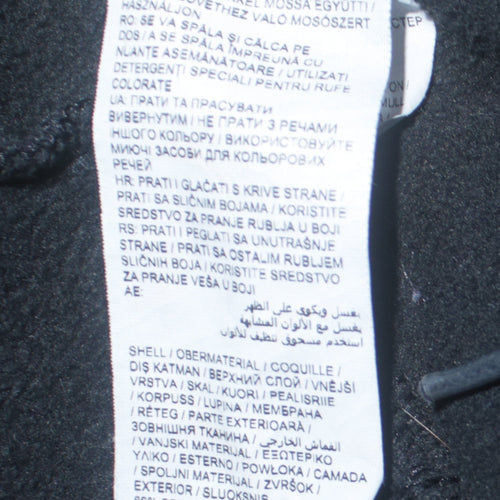 MOSSA EGYÜTT /
HASZNÁLJON
SZÖVETHEZ VALÓ MOSÓSZERT
RO: SE VA SPĂLA ȘI CĂLCA PE
DOS / A SE SPĂLA ÎMPREUNĂ CU
NUANȚE ASEMĂNĂTOARE / UTILIZAȚI
DETERGENȚI SPECIALI PENTRU RUFE
COLORATE
UA: ПРАТИ ТА ПРАСУВАТИ
ВИВЕРНУТИМ / НЕ ПРАТИ З РЕЧАМИ
ІНШОГО КОЛЬОРУ / ВИКОРИСТОВУЙТЕ
МИЮЧІ ЗАСОБИ ДЛЯ КОЛЬОРОВИХ
РЕЧЕЙ
HR: PRATI I GLAČATI S KRIVE STRANE /
PRATI SA SLIČNIM BOJAMA / KORISTITE
SREDSTVO ZA PRANJE RUBLJA U BOJI
RS: PRATI I PEGLATI SA UNUTRAŠNJE
STRANE / PRATI SA OSTALIM RUBLJEM
SLIČNIH BOJA / KORISTITE SREDSTVO
ZA PRANJE VEŠA U BOJI
AE:
يغسل ويكوى على الظهر
يغسل مع الألوان المشابهة
استخدم مسحوق تنظيف للألوان
SHELL / OBERMATERIAL / COQUILLE /
DIŞ KATMAN / ВЕРХНИЙ СЛОЙ / VNĚJŠÍ
VRSTVA / SKAL / KUORI / PEALISRIIE
/ KORPUSS / LUPINA / МЕМБРАНА
/ RÉTEG / PARTE EXTERIOARĂ /
ЗОВНІШНЯ ТКАНИНА / القماش الخارجي
/ VANJSKI MATERIJAL / ΕΞΩΤΕΡΙΚΟ
ΥΛΙΚΟ / ESTERNO / POWŁOKA / CAMADA
/ SPOLJNI MATERIJAL / ZVRŠOK /
EXTERIOR / SLUOKSNIS
СТЕР